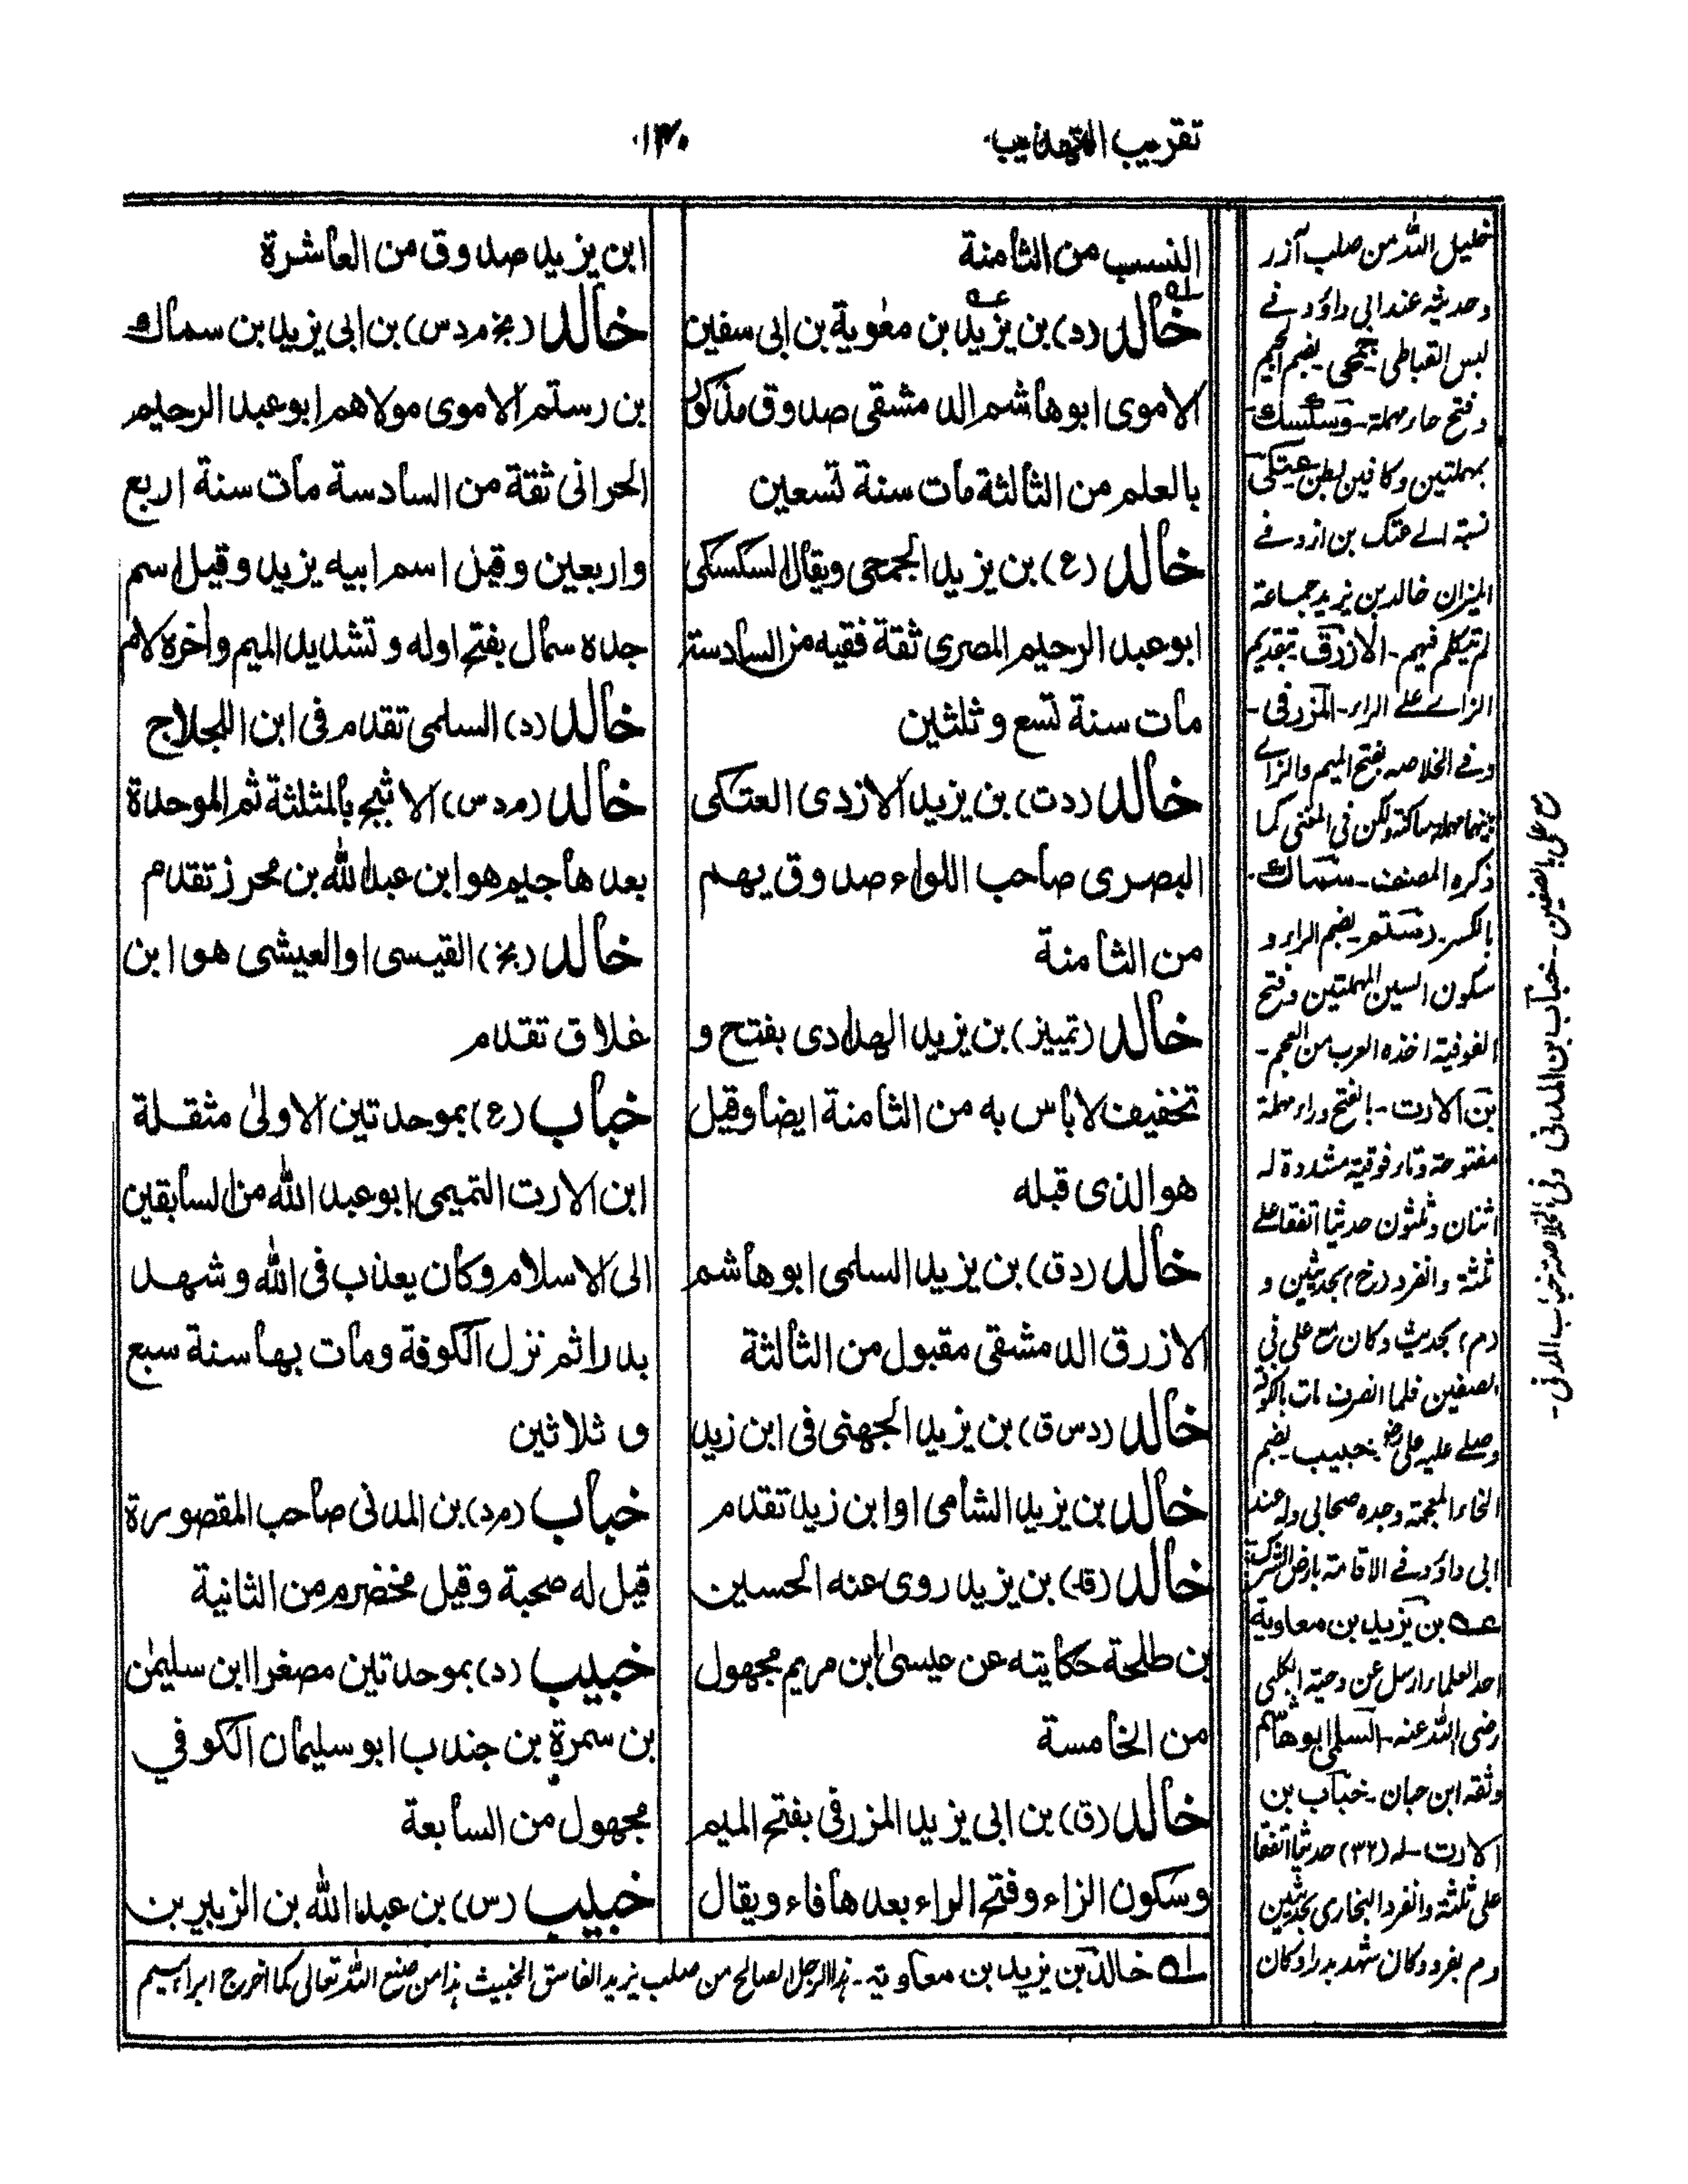 تقريب التهذيب
١٣٠
النسب من الثامنة
خالد (د) بن يزيد بن معٰوية بن ابى سفين
الاموى ابو هاشم الدمشقى صدوق مذكور
بالعلم من الثالثة مات سنة تسعين
خالد (ع) بن يزيد الجمحى ويقال السكسكى
ابو عبد الرحيم المصرى ثقة فقيه من السادسة
مات سنة تسع و ثلثين
خالد (دت) بن يزيد الازدى العتكى
البصرى صاحب اللواء صدوق يهم
من الثامنة
خالد (تمييز) بن يزيد الهدادى بفتح و
تخفيف لاباس به من الثامنة ايضا وقيل
هو الذى قبله
خالد (دق) بن يزيد السلمى ابو هاشم
الازرق الدمشقى مقبول من الثالثة
خالد (دس ق) بن يزيد الجهنى فى ابن زيد
خالد بن يزيد الشامى او ابن زيد تقدم
خالد (قد) بن يزيد روى عنه الحسين
بن طلحة حكايته عن عيسىٰ ابن مريم مجهول
من الخامسة
خالد (ق) بن ابى يزيد المزرفى بفتح الميم
وسكون الزاء وفتح الراء بعدها فاء ويقال
ابن يزيد صدوق من العاشرة
خالد (بخ م د س) بن ابى يزيد بن سماك
بن رستم الاموى مولاهم ابو عبد الرحيم
الحرانى ثقة من السادسة مات سنة اربع
واربعين وقيل اسم ابيه يزيد وقيل اسم
جده سمال بفتح اوله و تشديد الميم وأخره لام
خالد (د) السلمى تقدم فى ابن اللجلاج
خالد (م د س) الاثبج بالمثلثة ثم الموحدة
بعدها جيم هو ابن عبد الله بن محرز تقدم
خالد (بخ) القيسى او العيشى هو ابن
غلاق تقدم
خباب (ع) بموحدتين الاولىٰ مثقلة
ابن الارت التميمى ابو عبد الله من السابقين
الى الاسلام وكان يعذب فى الله وشهد
بدرا ثم نزل الكوفة ومات بها سنة سبع
و ثلاثين
خباب (م د) بن المدنى صاحب المقصورة
قيل له صحبة وقيل مخضرم من الثانية
خبيب (د) بموحدتين مصغرا ابن سليمٰن
بن سمرة بن جندب ابو سليمان الكوفي
مجهول من السابعة
خبيب (س) بن عبد الله بن الزبير بن
له خالد بن يزيد بن معاوية ـ هذا الرجل الصالح من صلب يزيد الفاسق الخبيث هذا من صنع الله تعالى كما اخرج ابراهيم
خليل الله من صلب آزر
وحديثه عند ابي داؤد في
لبس القباطى ـ جمحى ـ بضم الجيم
وفتح حاء مهملة ـ وسكسك
بمهملتين وكافين بطن ـ عتكى
نسبة الے عتك بن ازد ـ فے
الميزان خالد بن يزيد جماعة
لم يتكلم فيهم ـ الازرق بتقديم
الزاے علے الراء ـ المزرفى ـ
وفے الخلاصه بفتح الميم والزاے
بينهما مهملة ساكنة ولكن فى المغنى كما
ذكره المصنف ـ سماك ـ
بالكسر ـ رستم ـ بضم الراء و
سكون السين المهملتين وفتح
الفوقية اخذه العرب من العجم ـ
بن الارت ـ بالفتح وراء مهملة
مفتوحة وتاء فوقية مشددة له
اثنان وثلثون حديثا اتفقا علے
ثلثة وانفرد (خ) بحديثين و
(م) بحديث وكان مع على فى
الصفين فلما انصرف مات بالكوفة
وصلے عليه علىؓ ـ خبيب ـ بضم
الخاء المعجمة وجده صحابى وله عند
ابى داؤد فے الاقامة بارض الشرك
عه بن يزيد بن معاوية
احد العلماء ارسل عن دحية الكلبى
رضى الله عنه ـ السلمى ابو هاشم
وثقه ابن حبان ـ خباب بن
الارت ـ له (٣٢) حديثا اتفقا
على ثلثة وانفرد البخارى بحديثين
و م بفرد وكان شهد بدرا وكان
مع على بالصفين ـ خباب بن المدنى وفى الخلاصة خباب المدنى ـ